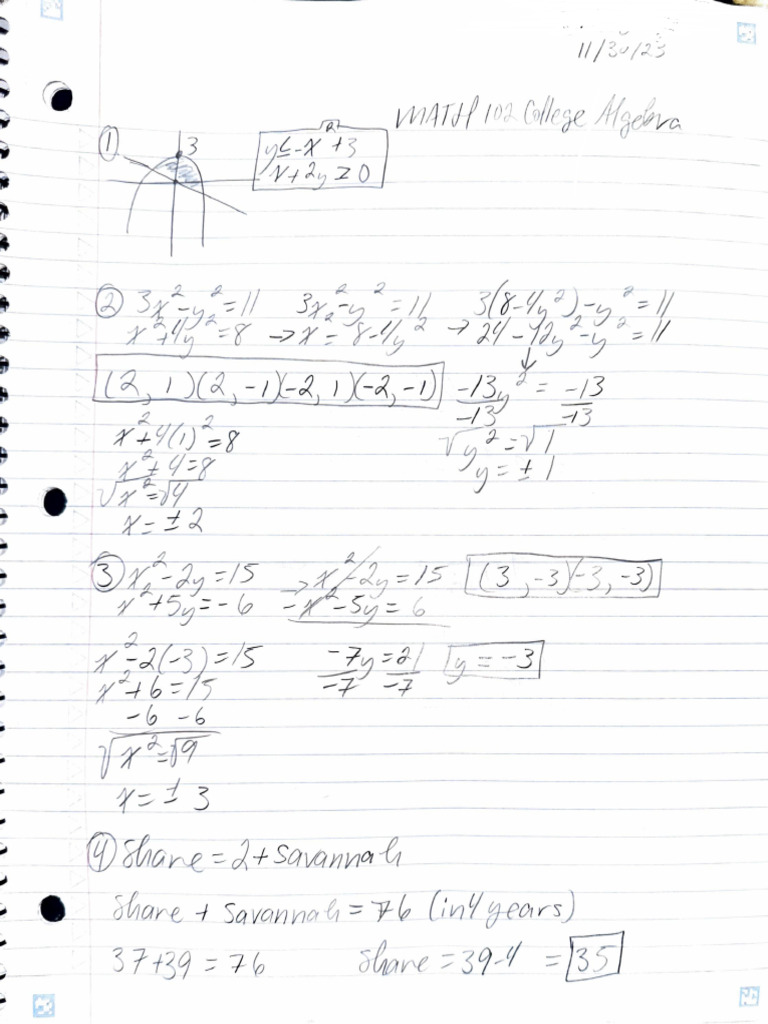 11/30/23
MATH 102 College Algebra
① 3
y ≤ -x² + 3
x + 2y ≥ 0
② 3x² - y² = 11   3x² - y² = 11   3(8 - 4y²) - y² = 11
x² + 4y² = 8 → x² = 8 - 4y² → 24 - 12y² - y² = 11
(2, 1)(2, -1)(-2, 1)(-2, -1)   -13y²/-13 = -13/-13
x² + 4(1)² = 8   √y² = √1
x² + 4 = 8   y = ± 1
√x² = √4
x = ± 2
③ x² - 2y = 15   → x² - 2y = 15   (3, -3)(-3, -3)
x² + 5y = -6   -x² - 5y = 6
x² - 2(-3) = 15   -7y/-7 = 21/-7   y = -3
x² + 6 = 15
-6 -6
√x² = √9
x = ± 3
④ Shane = 2 + Savannah
Shane + Savannah = 76 (in 4 years)
37 + 39 = 76   Shane = 39 - 4 = 35